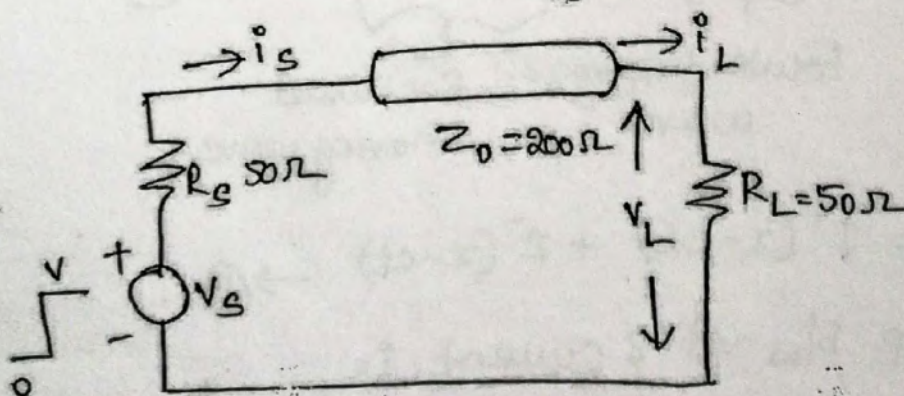 i_S
i_L
Z_0 = 200Ω
R_S 50Ω
V_L
R_L = 50Ω
+
V_S
-
V
0